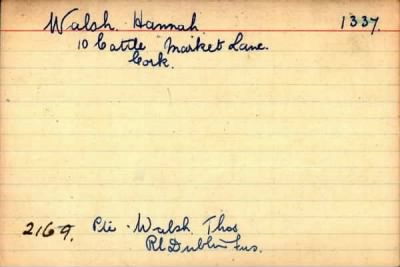 Walsh. Hannah. 1337.
10 Cattle Market Lane.
Cork.
2169. Pte. Walsh. Thos
Rl Dublin Fus.